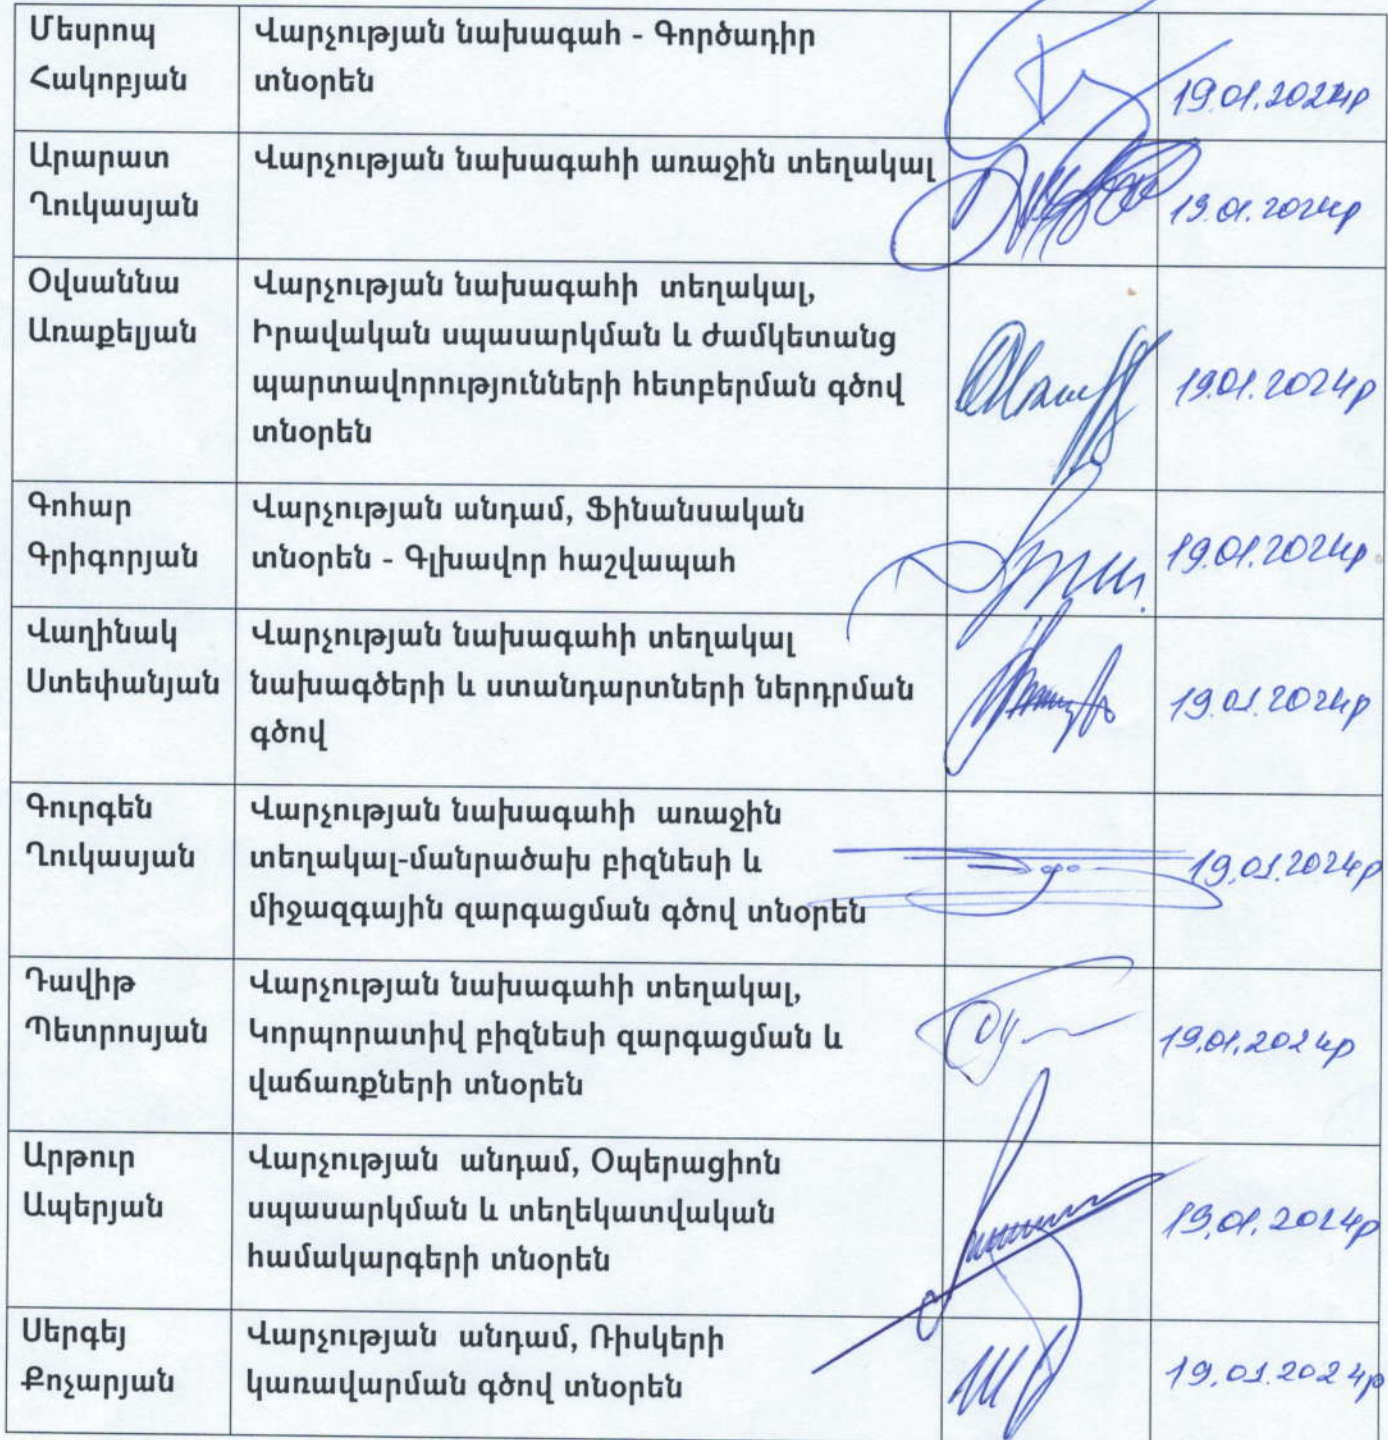 Մեսրոպ
Հակոբյան
Վարչության նախագահ - Գործադիր
տնօրեն
19.01.2024թ
Արարատ
Ղուկասյան
Վարչության նախագահի առաջին տեղակալ
19.01.2024թ
Օվսաննա
Առաքելյան
Վարչության նախագահի տեղակալ,
Իրավական սպասարկման և ժամկետանց
պարտավորությունների հետբերման գծով
տնօրեն
19.01.2024թ
Գոհար
Գրիգորյան
Վարչության անդամ, Ֆինանսական
տնօրեն - Գլխավոր հաշվապահ
19.01.2024թ
Վաղինակ
Ստեփանյան
Վարչության նախագահի տեղակալ
նախագծերի և ստանդարտների ներդրման
գծով
19.01.2024թ
Գուրգեն
Ղուկասյան
Վարչության նախագահի առաջին
տեղակալ-մանրածախ բիզնեսի և
միջազգային զարգացման գծով տնօրեն
19.01.2024թ
Դավիթ
Պետրոսյան
Վարչության նախագահի տեղակալ,
Կորպորատիվ բիզնեսի զարգացման և
վաճառքների տնօրեն
19.01.2024թ
Արթուր
Ապերյան
Վարչության անդամ, Օպերացիոն
սպասարկման և տեղեկատվական
համակարգերի տնօրեն
19.01.2024թ
Սերգեյ
Քոչարյան
Վարչության անդամ, Ռիսկերի
կառավարման գծով տնօրեն
19.01.2024թ